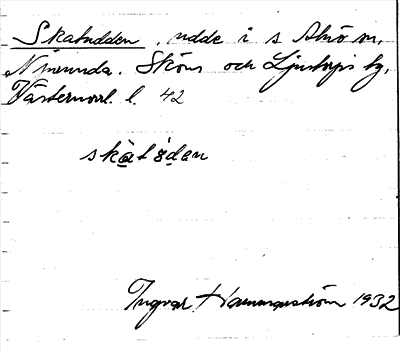 Skatudden, udde i s Alnö sn,
Njurunda, Sköns och Ljustorps tg,
Västernorrl. l. 42
skàtøden
Ingvar Hammarström 1932